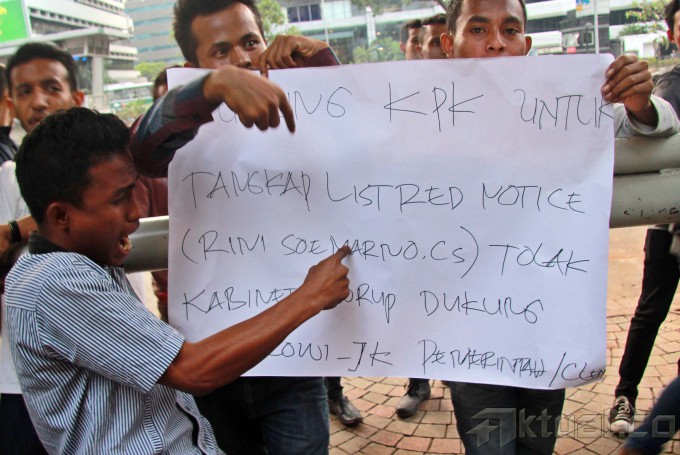 KPK UNTUK
TANGKAP LIST RED NOTICE
(RINI SOEMARNO.CS) TOLAK
KABINET DUKUNG
JK PEMERINTAH/CLEAN
Aktual.Co